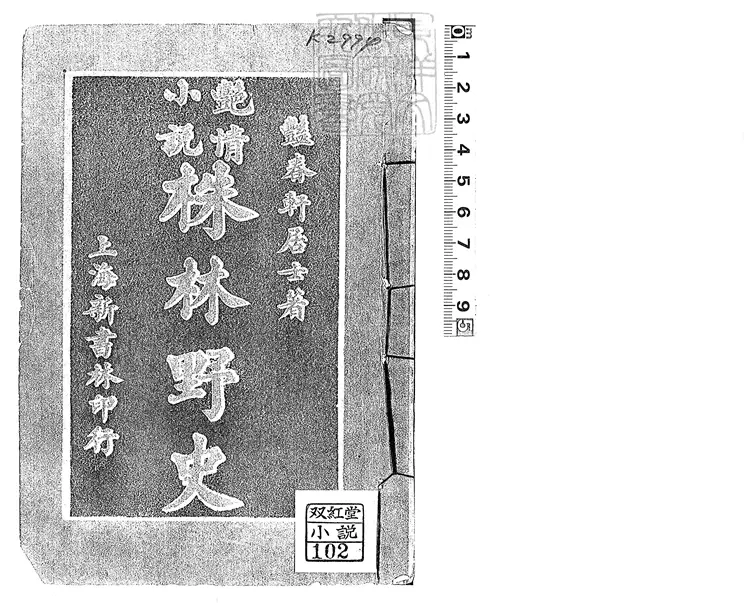 K2999
豔春軒居士著
艷情
小說
株林野史
上海新書林印行
双紅堂
小説
102
0 1 2 3 4 5 6 7 8 9